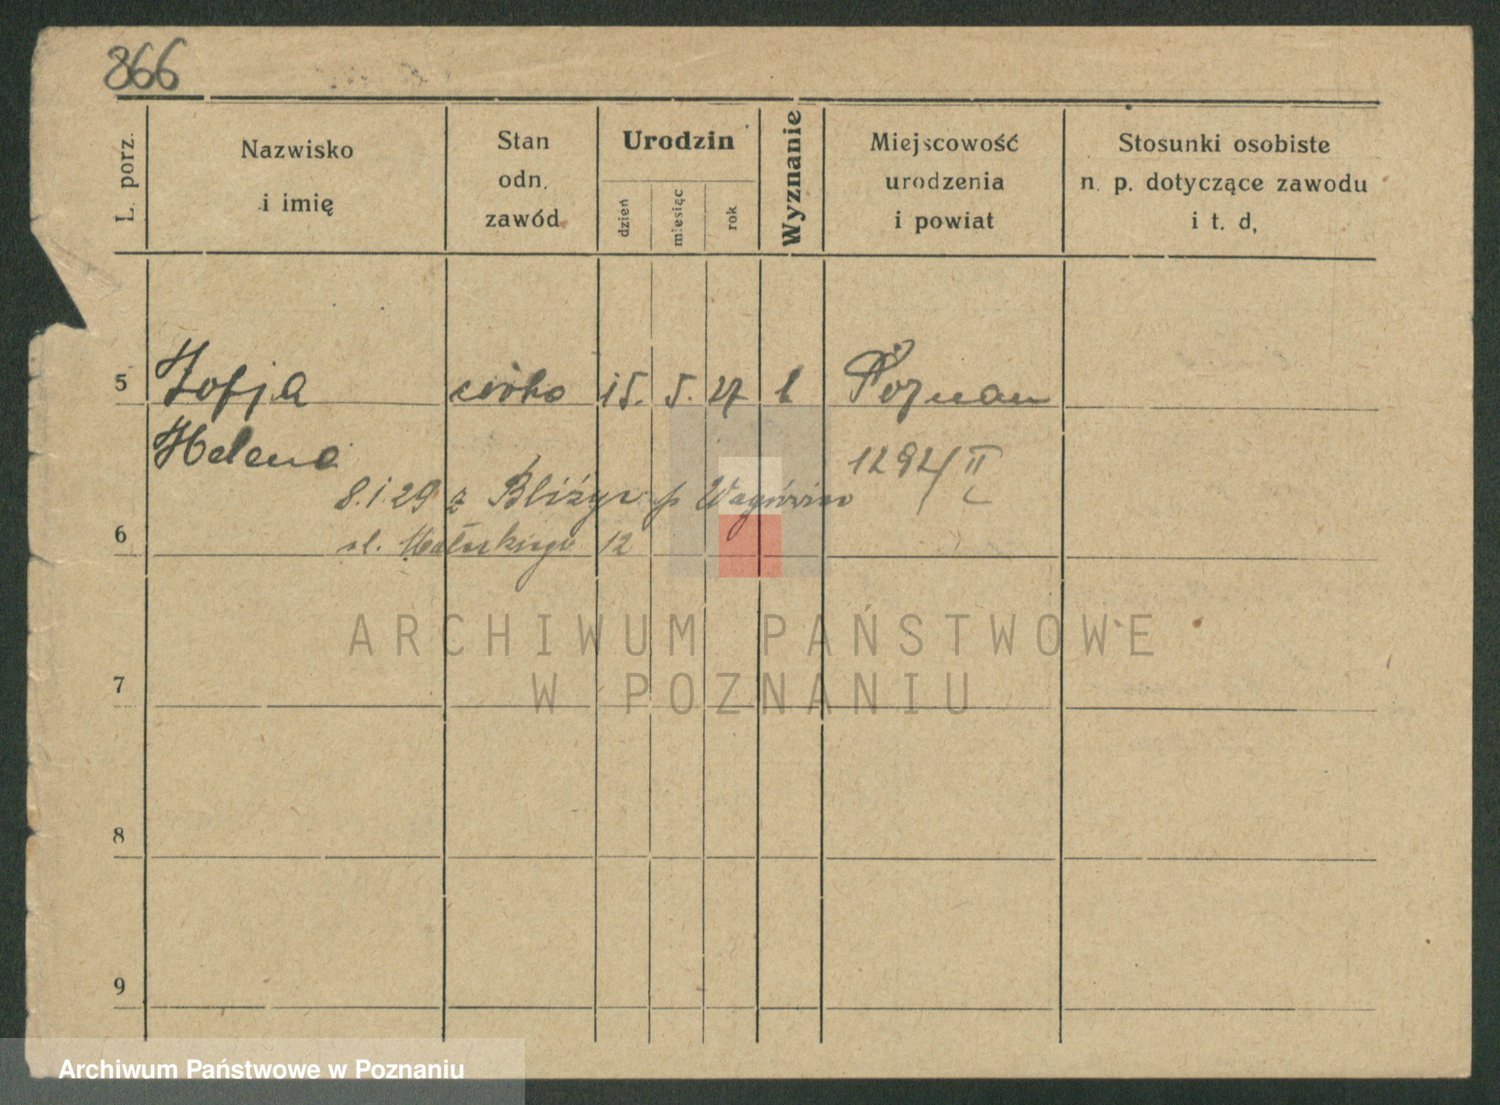 866
L. porz.
Nazwisko
i imię
Stan
odn.
zawód
Urodzin
dzień
miesiąc
rok
Wyznanie
Miejscowość
urodzenia
i powiat
Stosunki osobiste
n. p. dotyczące zawodu
i t. d,
5 Zofja córka 15. 5. 27 k Poznań
Helena 1294/II
8.1.29 z Bliżyc p
6
ul. 12
7
8
9
ARCHIWUM PAŃSTWOWE
W POZNANIU
Archiwum Państwowe w Poznaniu